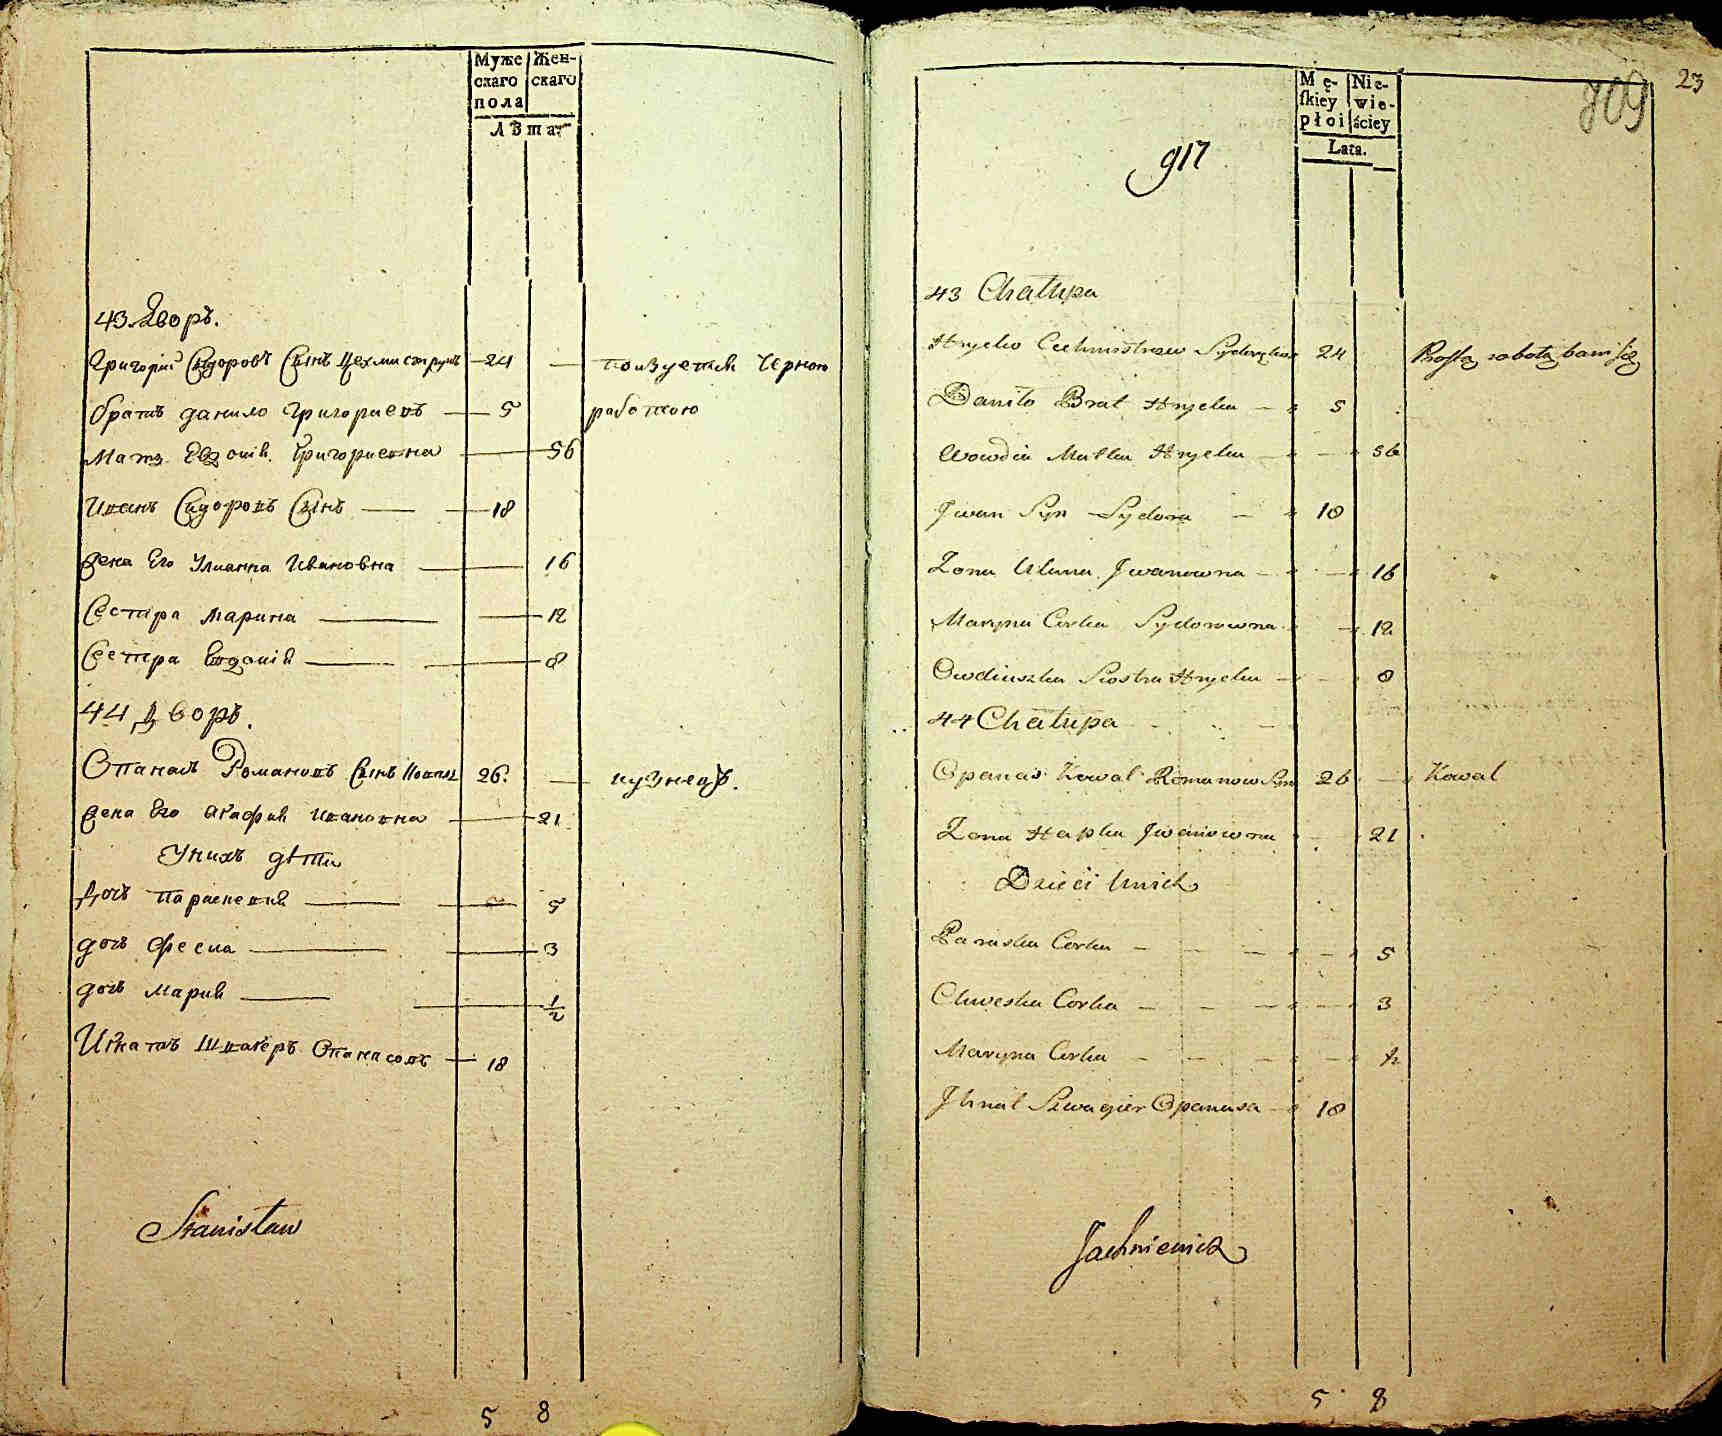 Муже
скаго
пола
Жен-
скаго
Лѣта
43 Дворъ.
Григорій Сидоровъ Сынъ 24
пользуется Черною
братъ данило григориевъ 5
работою
Мать Евдокія Григориевна 56
Иванъ Сидоровъ Сынъ 18
Жена Его Улианна Ивановна 16
Сестра Марина 12
Сестра Евдокія 8
44 Дворъ.
Опанасъ Романовъ Сынъ Коваль 26.
кузнецъ.
Жена Его Агафия Ивановна 21
У нихъ дѣти
Дочь Параскевия 5
дочь Феска 3
дочь Мария 1/2
Игнатъ Швагеръ Опанасовъ 18
Stanisław
5 8
23
809
917
Mę-
skiey
płci
Nie-
wie-
ściey
Lata.
43 Chałupa
Hryćko Cechmistrow Sydorenko 24
Prostą robotą bawi się
Daniło Brat Hryćka 5
Wowdia Matka Hryćka 56
Jwan Syn Sydora 18
Zona Ulana Jwanowna 16
Maryna Corka Sydorowna 12
Owdiuszka Siostra Hryćka 8
44 Chałupa
Opanas Kowal Romanow Syn 26
Kowal
Zona Hapka Jwanowna 21
Dzieci Unich
Paraska Corka 5
Chweska Corka 3
Maryna Corka 1/2
Jhnat Szwagier Opanasa 18
Jachniewicz
5 8